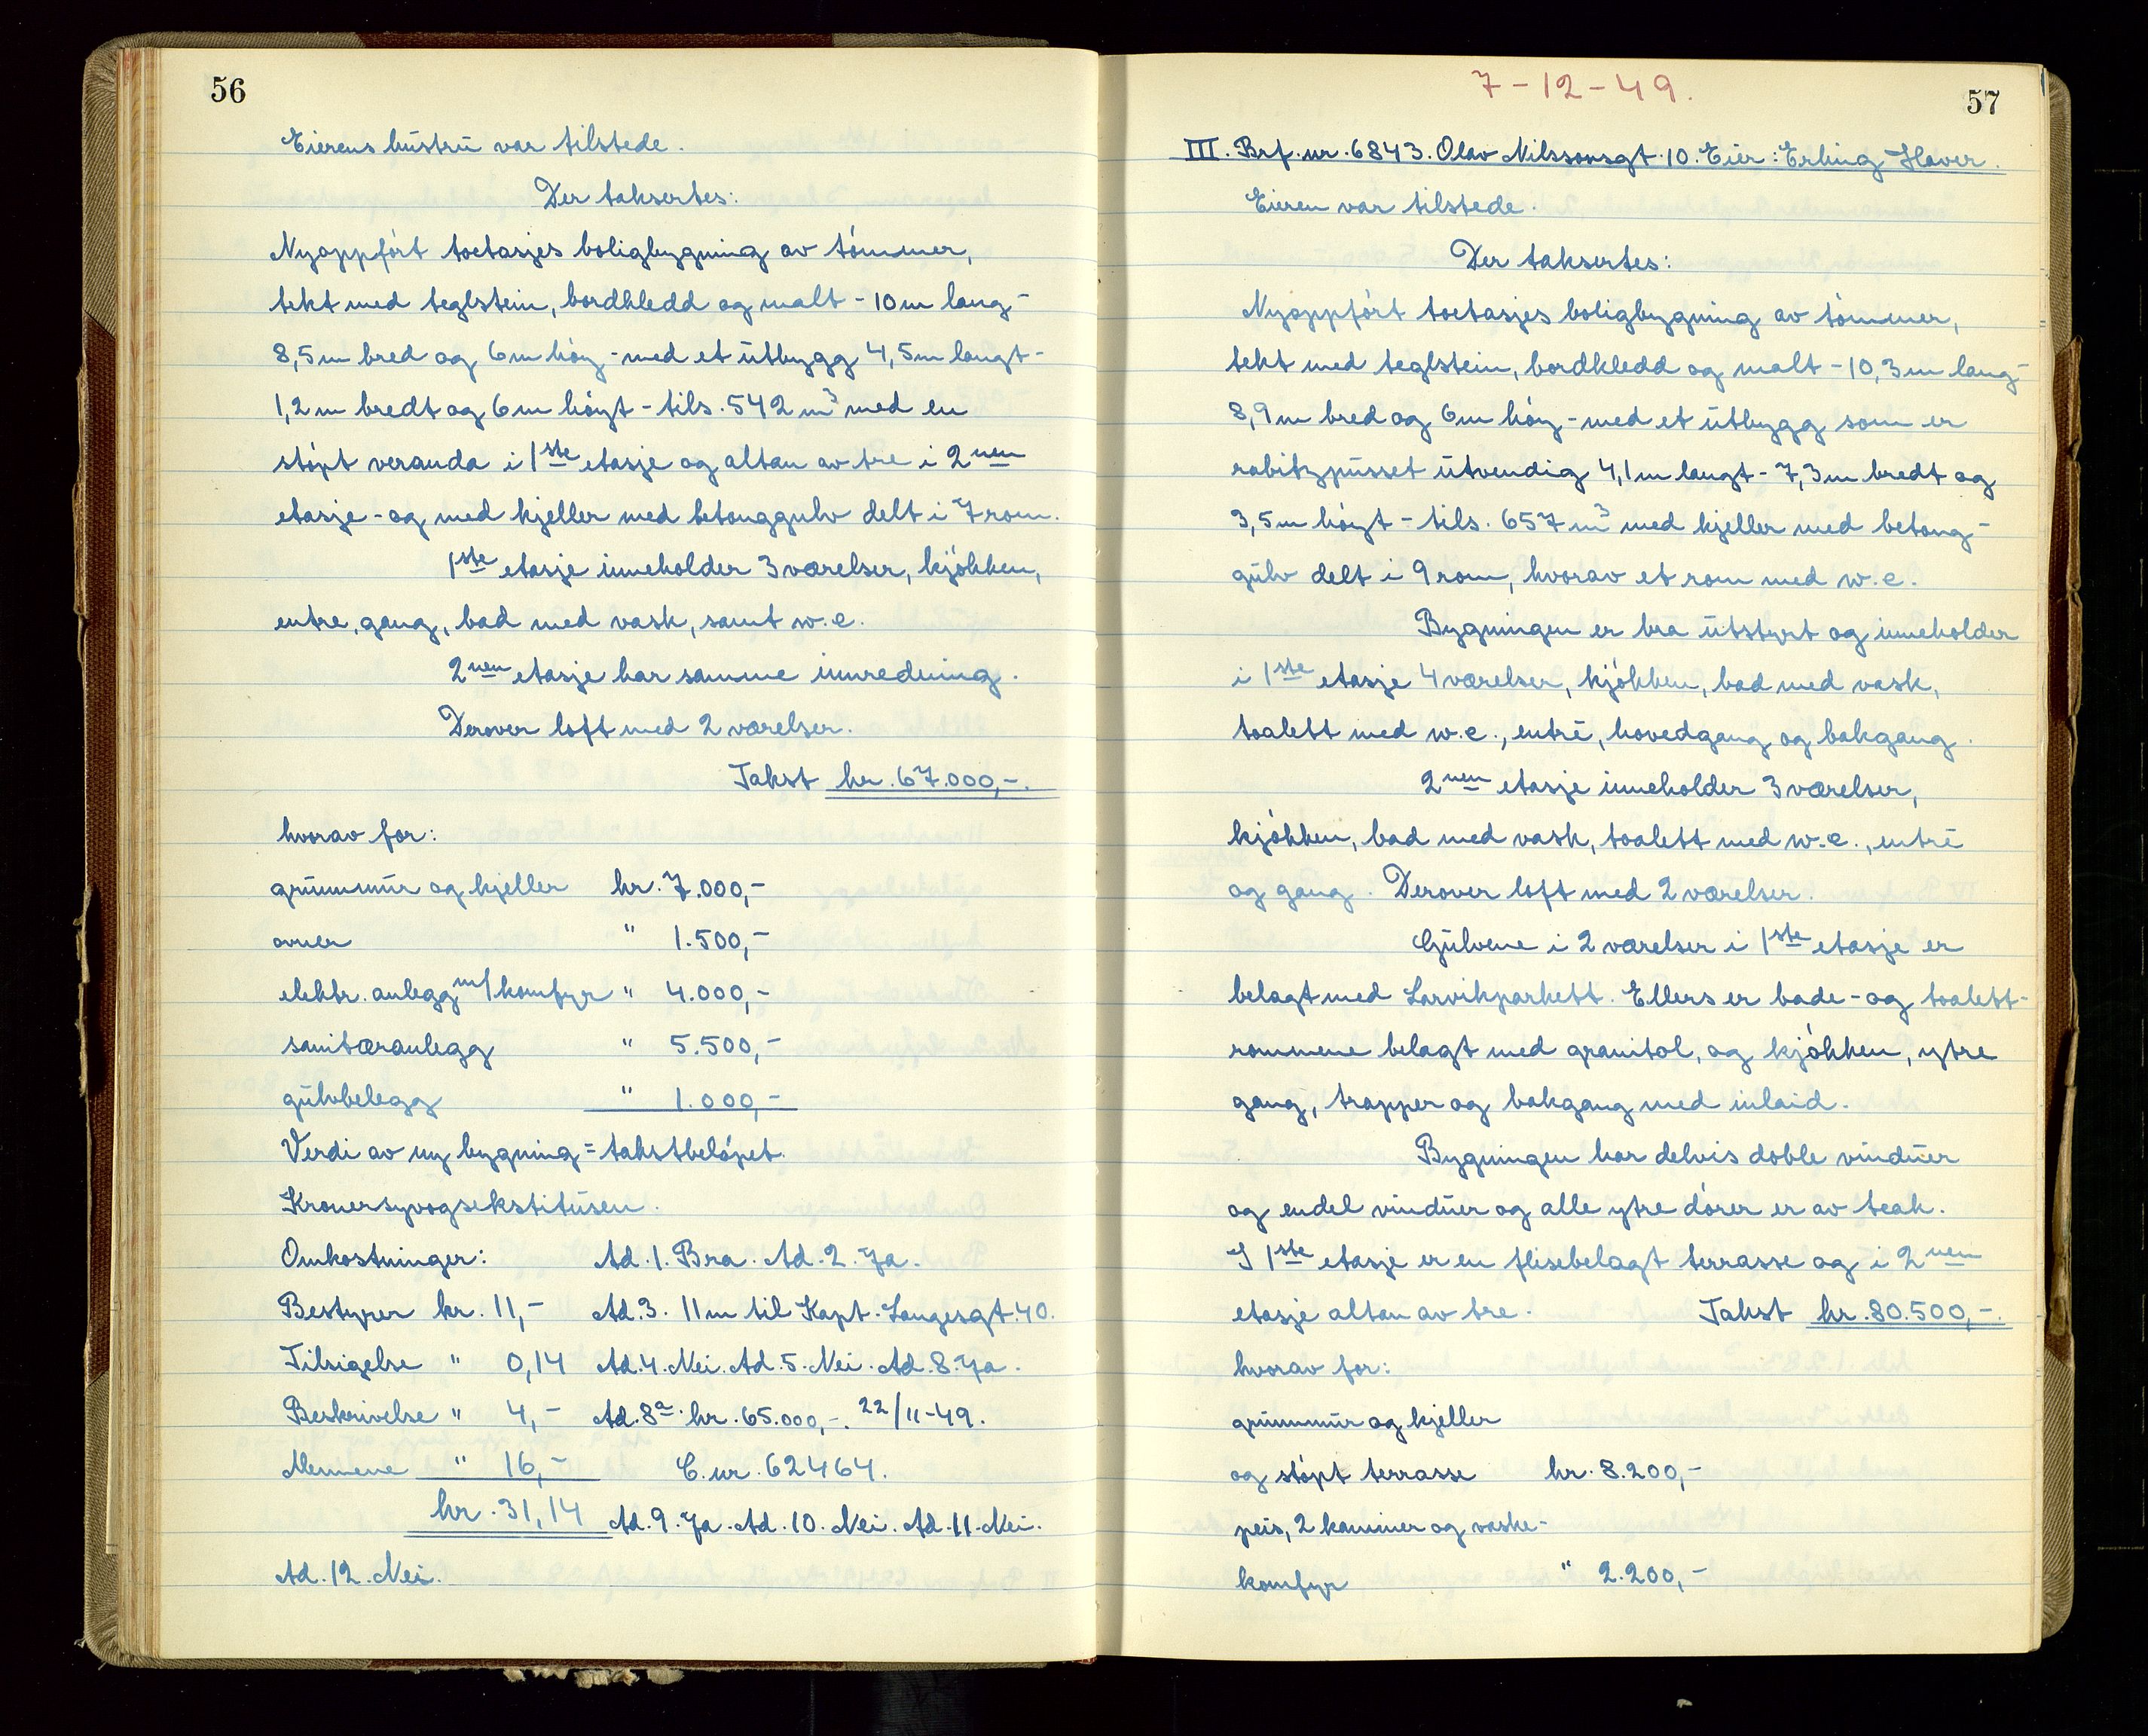 56
Eierens hustru var tilstede.
Der taksertes:
Nyoppfört toetasjes boligbygning av tömmer,
tekt med teglstein, bordkledd og malt - 10 m lang -
8,5 m bred og 6 m höy - med et utbygg 4,5 m langt -
1,2 m bredt og 6 m höyt - tils. 542 m³ med en
stöpt veranda i 1ste etasje og altan av tre i 2nen
etasje - og med kjeller med betonggulv delt i 7 rom.
1ste etasje inneholder 3 værelser, kjökken,
entre, gang, bad med vask, samt w.c.
2nen etasje har samme innredning.
Derover loft med 2 værelser.
Takst kr. 67.000,-.
hvorav for:
grunnmur og kjeller kr. 7.000,-
ovner " 1.500,-
elektr. anlegg m/komfyr " 4.000,-
sanitæranlegg " 5.500,-
gulvbelegg " 1.000,-
Verdi av ny bygning = takstbelöpet.
Kronersyvogsekstitusen.
Omkostninger: Ad. 1. Bra. Ad. 2. Ja.
Bestyrer kr. 11,- Ad. 3. 11 m til Kapt. Langesgt. 40.
Tilsigelse " 0,14 Ad. 4. Nei. Ad. 5. Nei. Ad. 8. Ja.
Beskrivelse " 4,- Ad. 8a. kr. 65.000,-. 22/11-49.
Mennene " 16,- C. nr. 62464.
kr. 31,14 Ad. 9. Ja. Ad. 10. Nei. Ad. 11. Nei.
Ad. 12. Nei.
7-12-49.
57
III. Brf. nr. 6843. Olav Nilssonsgt. 10. Eier: Erling Haver.
Eieren var tilstede.
Der taksertes:
Nyoppfört toetasjes boligbygning av tömmer,
tekt med teglstein, bordkledd og malt - 10,3 m lang -
8,9 m bred og 6 m höy - med et utbygg som er
rabitzpusset utvendig 4,1 m langt - 7,3 m bredt og
3,5 m höyt - tils. 657 m³ med kjeller med betong-
gulv delt i 9 rom, hvorav et rom med w.c.
Bygningen er bra utstyrt og inneholder
i 1ste etasje 4 værelser, kjökken, bad med vask,
toalett med w.c., entré, hovedgang og bakgang.
2nen etasje inneholder 3 værelser,
kjökken, bad med vask, toalett med w.c., entré
og gang. Derover loft med 2 værelser.
Gulvene i 2 værelser i 1ste etasje er
belagt med Larvikparkett. Ellers er bade- og toalett-
rommene belagt med granitol, og kjökken, ytre
gang, trapper og bakgang med inlaid.
Bygningen har delvis doble vinduer
og endel vinduer og alle ytre dörer er av teak.
I 1ste etasje er en flisebelagt terrasse og i 2nen
etasje altan av tre. Takst kr. 80.500,-.
hvorav for:
grunnmur og kjeller
og stöpt terrasse kr. 8.200,-
peis, 2 kaminer og vaske-
komfyr " 2.200,-